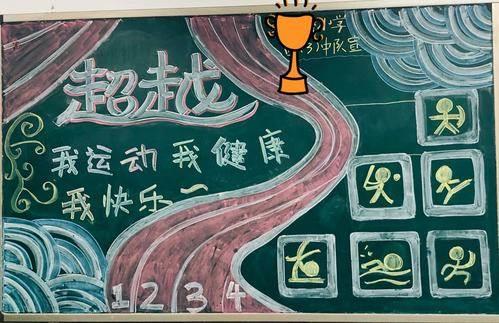 学
中队宣
超越
我运动 我健康
我快乐~
1 2 3 4